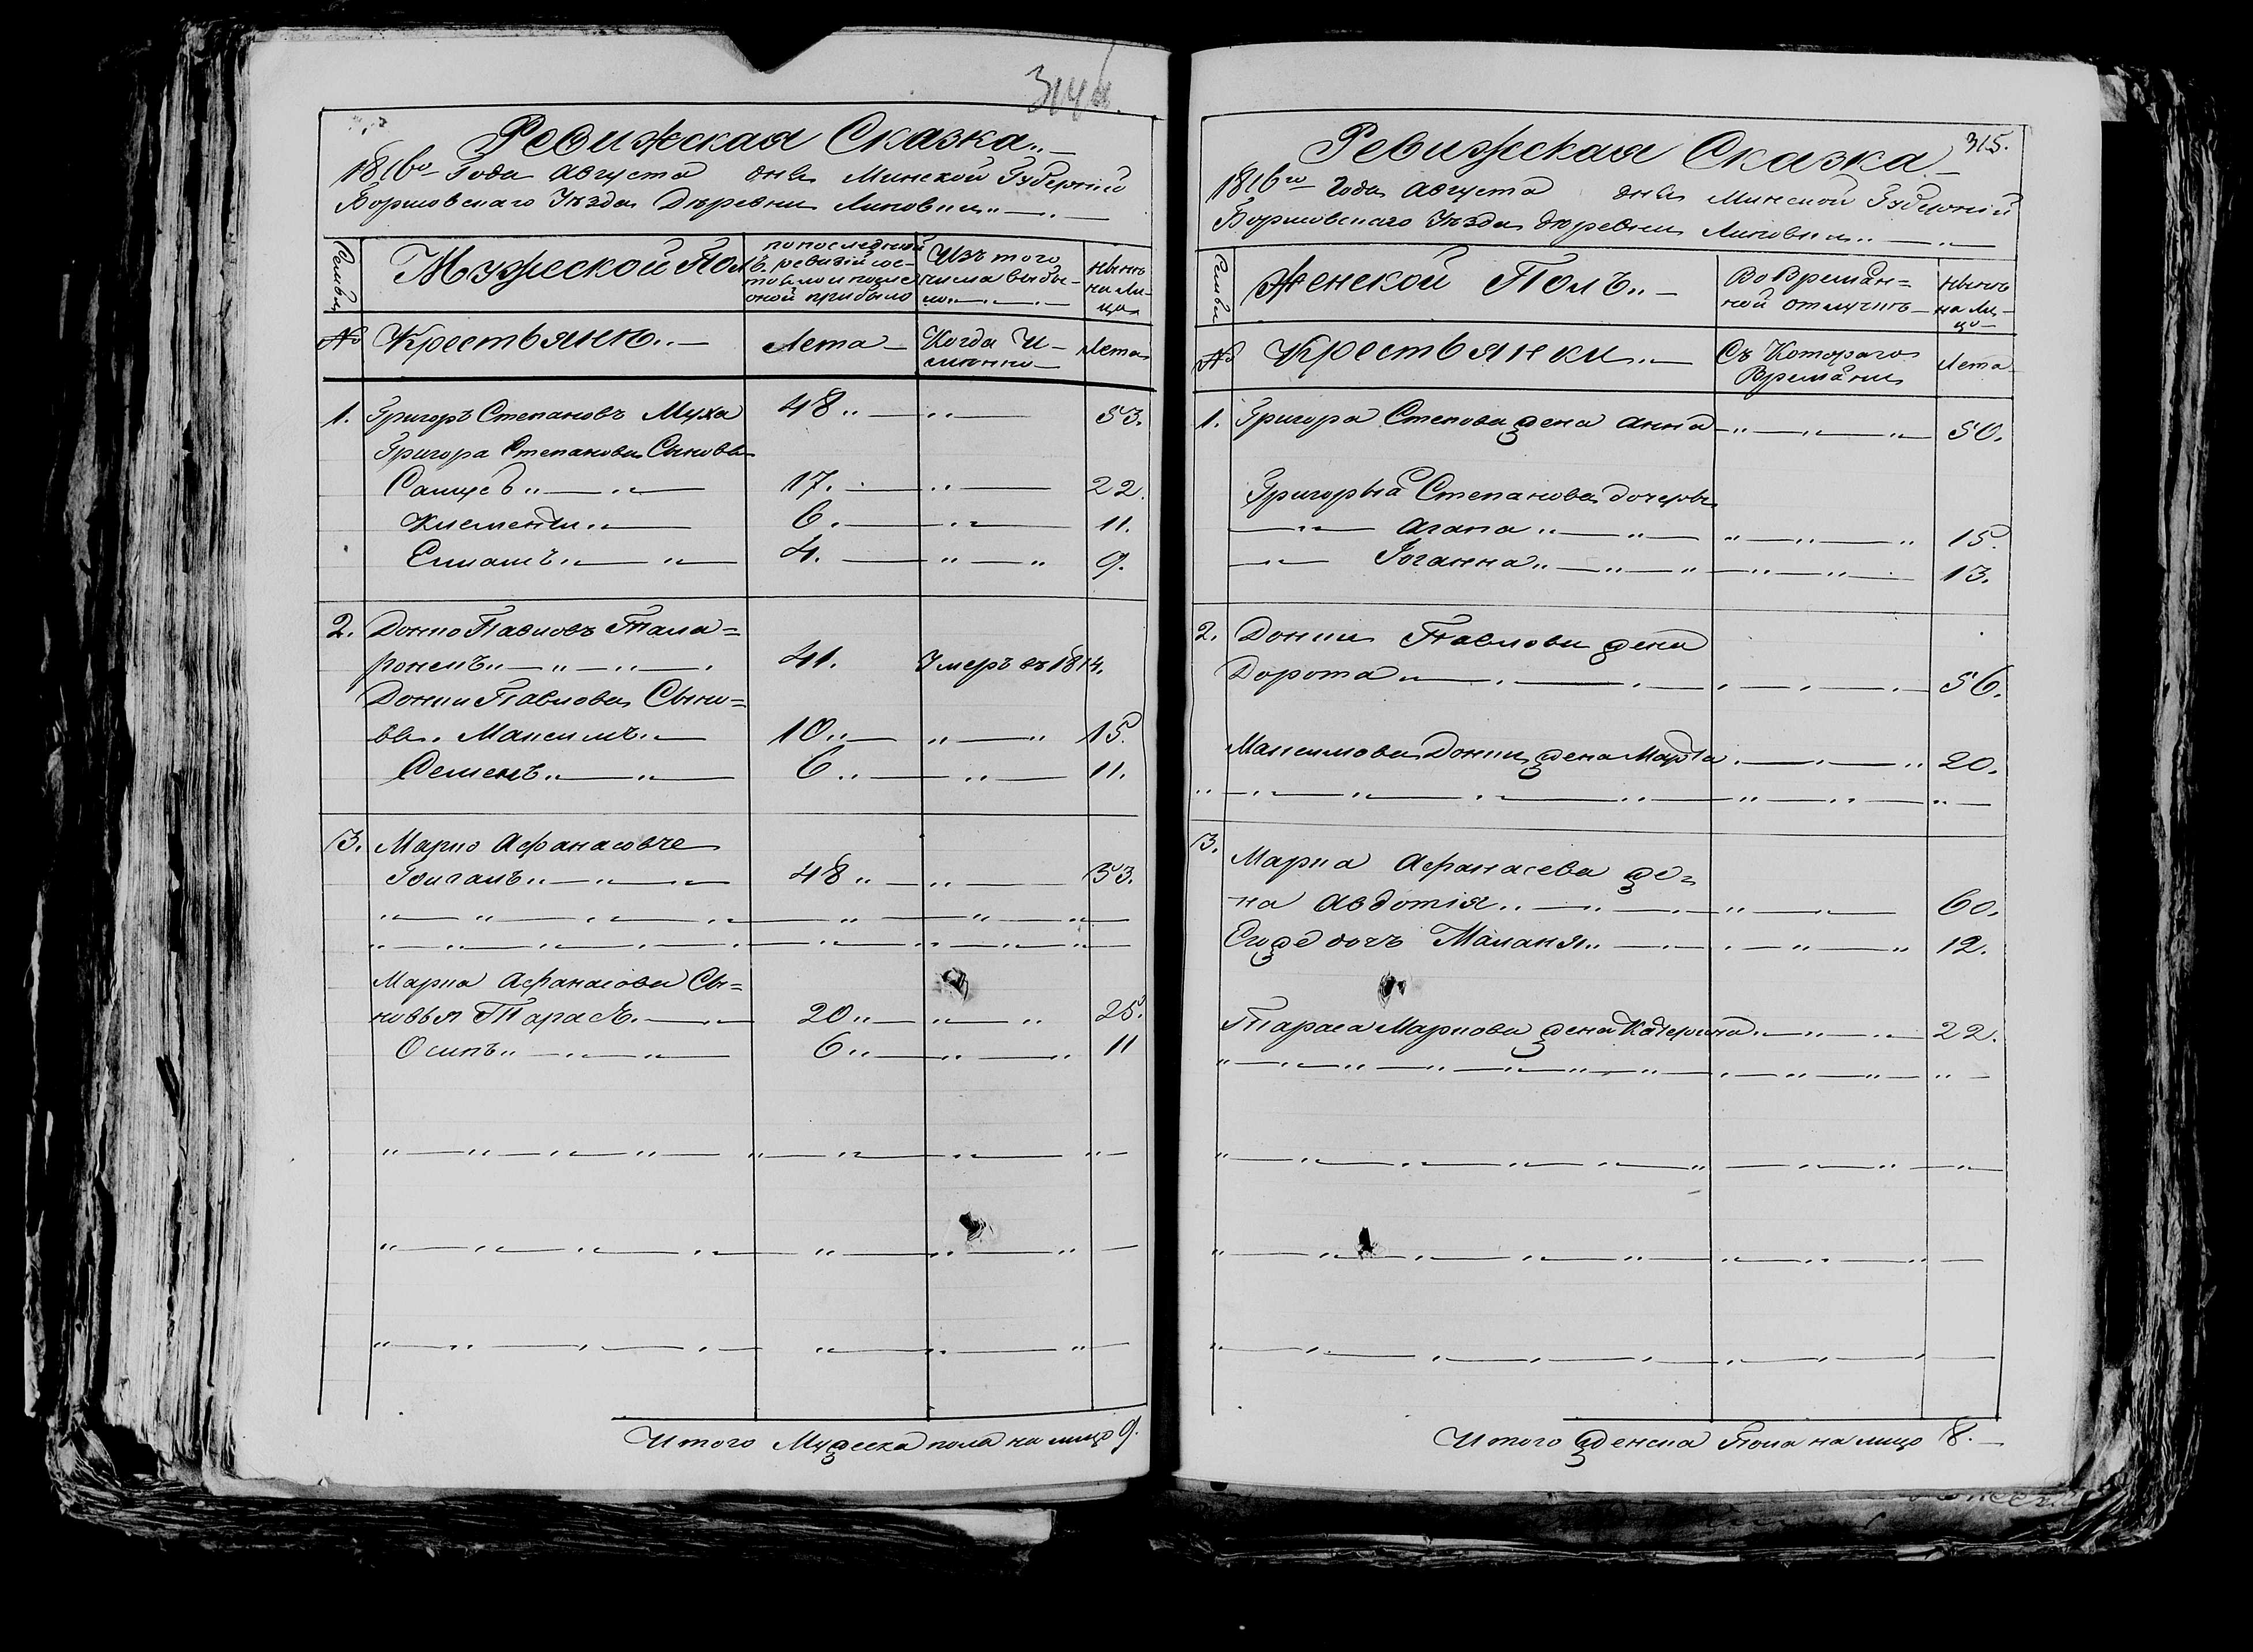 Ревижская Сказка
1816го Года Августа дня Минской Губерніи
Борисовскаго Уѣзда Деревни Липовки
Семьи
Мужеской Полъ
по последней
ревизіи сос-
тояло и после
оной прибыло
Изъ того
числа выбы-
ло
Нынѣ
на Ли-
цо
№
Крестьяне
Лета
Когда И-
мянно
Лета
1. Григоръ Степановъ Муха 48 53.
Григора Степанова Сыновья
17. 22.
Клементи 6. 11.
4. 9.
2. Павловъ
41. Умеръ въ 1814.
Павлова Сыно=
вья Максимъ 10 15.
Семенъ 6 11.
3. Марко Афанасовъ
48 53.
Марка Афанасова Сы=
новья Тарасъ 20 25.
Осипъ 6 11
Итого Мужеска пола на лицо 9.
315.
Ревижская Сказка
1816го Года Августа дня Минской Губерніи
Борисовскаго Уѣзда деревни Липовки
Семьи
Женской Полъ
Во Времян=
ной отлучкѣ
Нынѣ
на Ли-
цо
№
Крестьянки
Съ Котораго
Времани
Лета
1. Григора Степова жена Анна 50.
Григорья Степанова дочерьи
Агапа 15.
Іоганна 13.
2. Павлова жена
Дорота 56.
Максимова жена Марта 20.
3. Марка Афанасева же=
на Авдотія 60.
Егоже дочь Маланя 12.
Тараса Маркова жена Катерина 22.
Итого женска Пола на лицо 8.